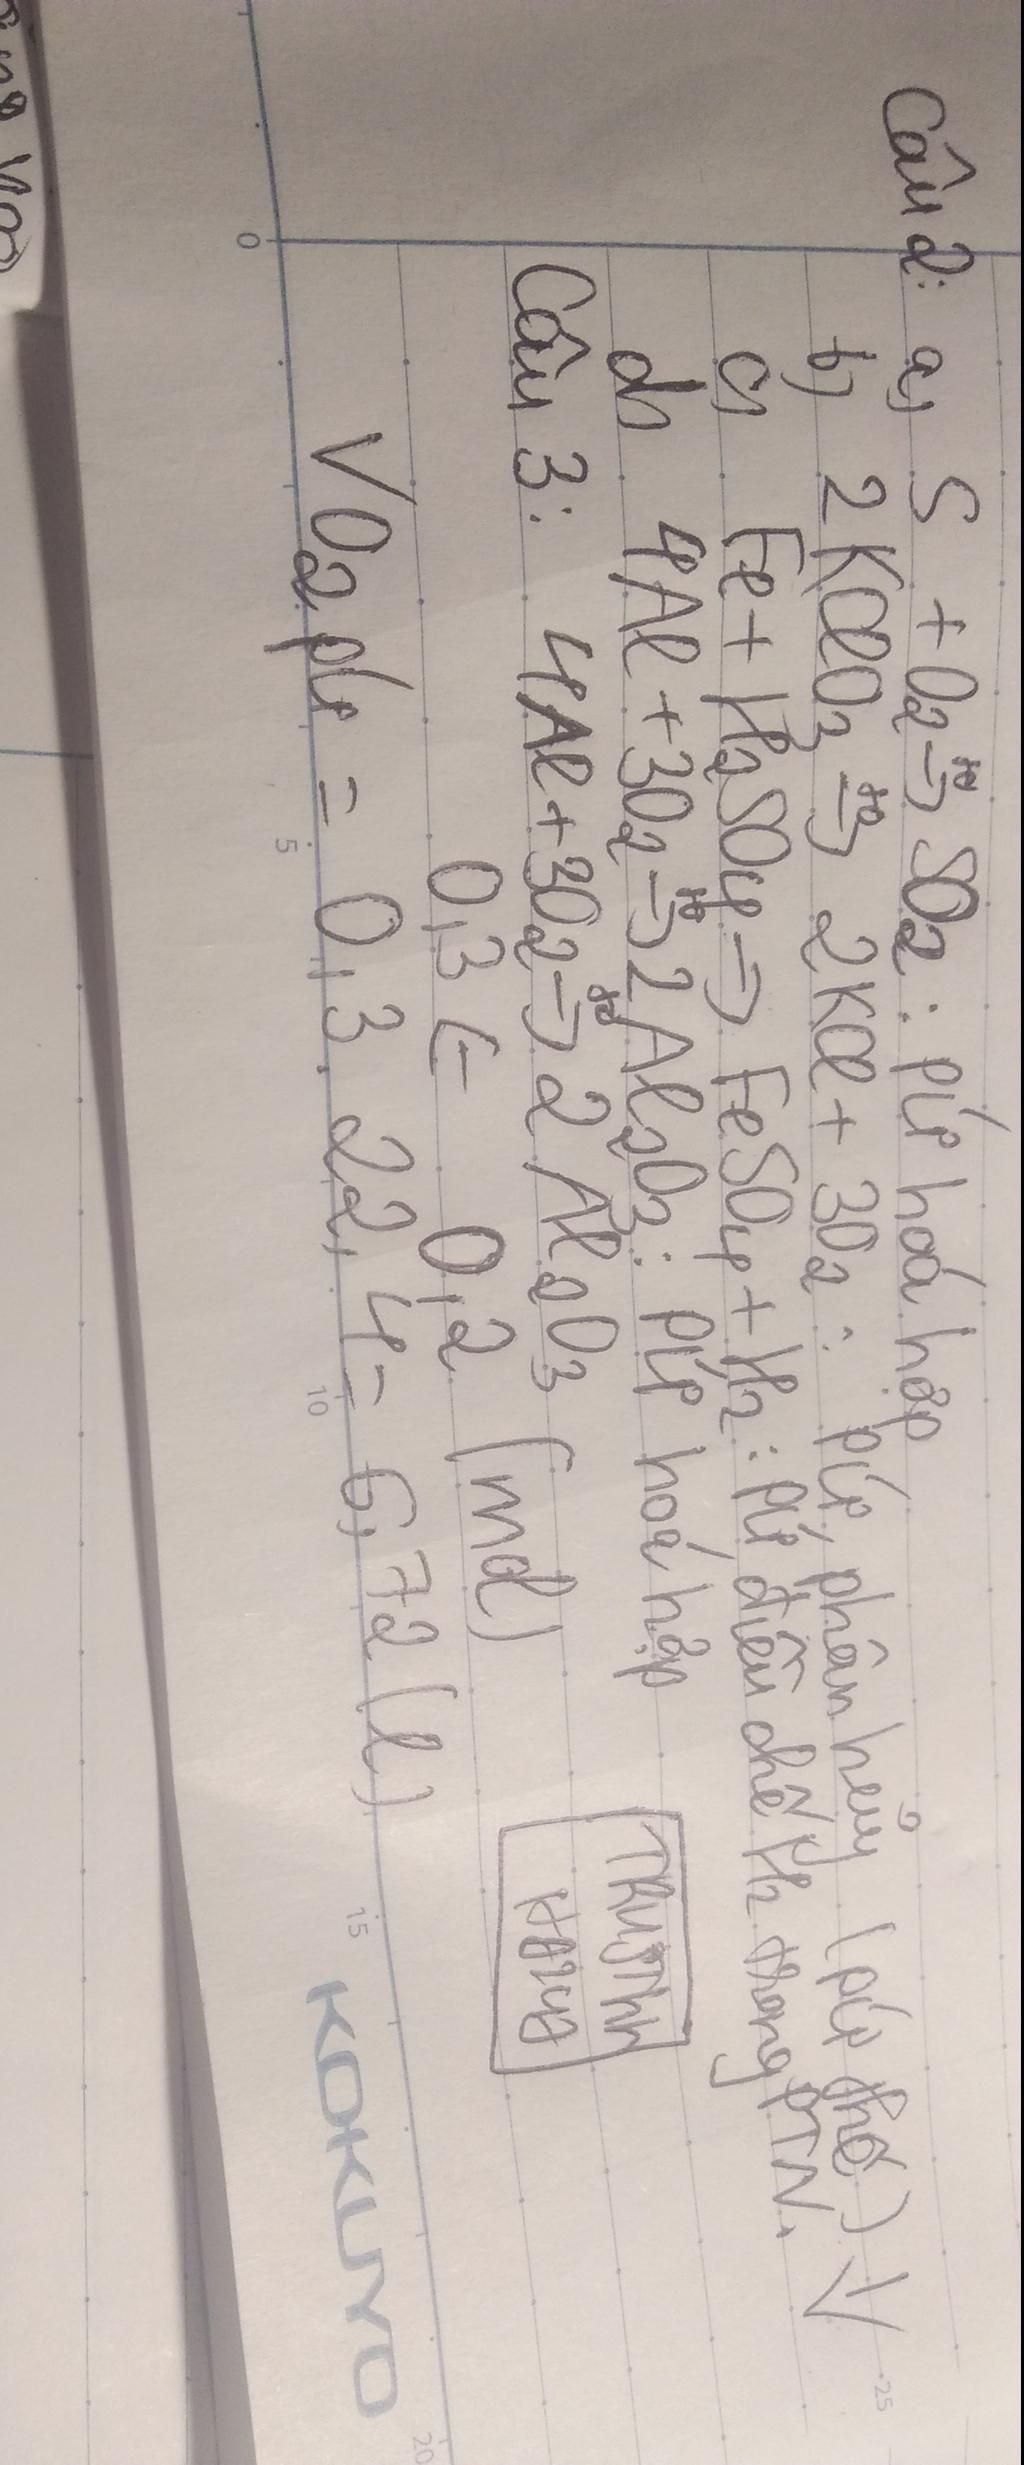 Câu 2: a, S + O2 -t°-> SO2: pứ hoá hợp
b, 2KClO3 -t°-> 2KCl + 3O2: pứ phân hủy (pứ thế) V
c, Fe + H2SO4 -> FeSO4 + H2: pứ điều chế H2 trong PTN.
d, 4Al + 3O2 -t°-> 2Al2O3: pứ hoá hợp
Câu 3: 4Al + 3O2 -t°-> 2Al2O3
0,3 <- 0,2 (mol)
VO2 pứ = 0,3. 22,4 = 6,72 (l)
0 5 10 15 20 25
KOKUYO